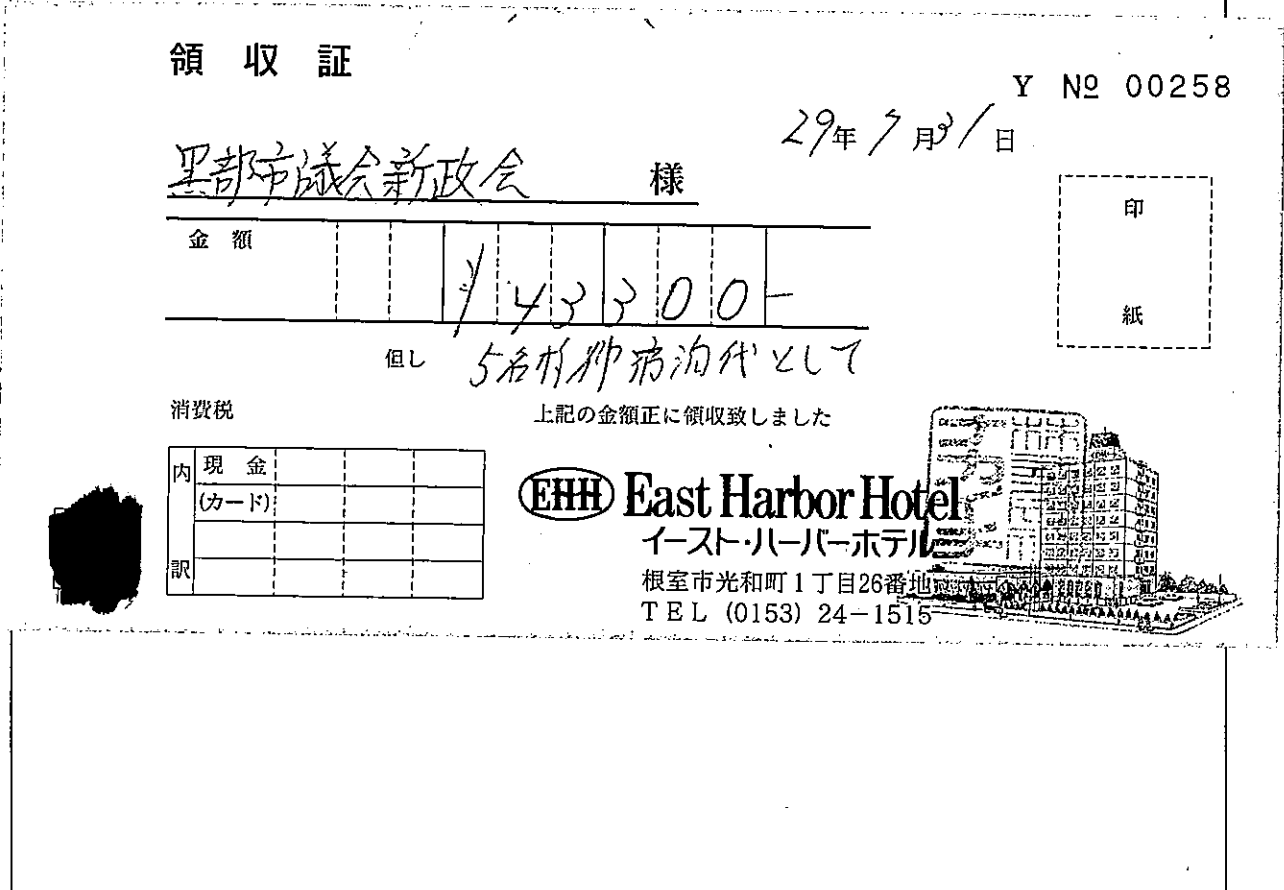 領収証
Y № 00258
29年7月31日
黒部市議会新政会 様
金額 ¥43300-
但し 5名様御宿泊代として
消費税
上記の金額正に領収致しました
印紙
内訳
現金
(カード)
EHH East Harbor Hotel
イースト・ハーバーホテル
根室市光和町1丁目26番地
TEL (0153) 24-1515